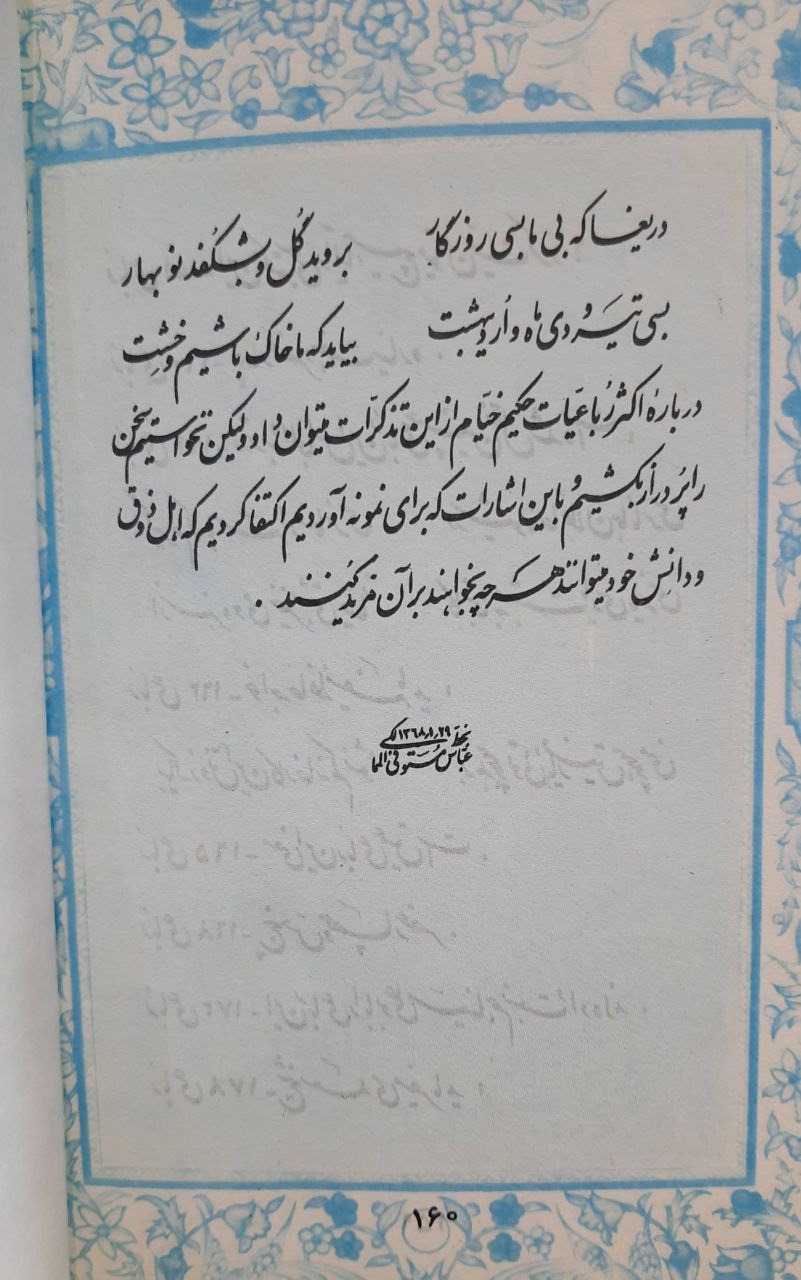 دریغا که بی ما بسی روزگار    بروید گل و بشکفد نوبهار
بسی تیر و دی ماه و اردیبهشت    بیاید که ما خاک باشیم و خشت
دربارهٔ اکثر رُباعیات حکیم خیام از این تذکرات میتوان داد ولیکن نخواستیم سخن
را پُر دراز بکشیم و باین اشارات که برای نمونه آوردیم اکتفا کردیم که اهل ذوق
و دانِش خود میتوانند هرچه بخواهند بر آن مزید کُنند .
بخط ۱۳۶۸٫۱٫۲۹
عباس مستوفی الممالکی
۱۶۰